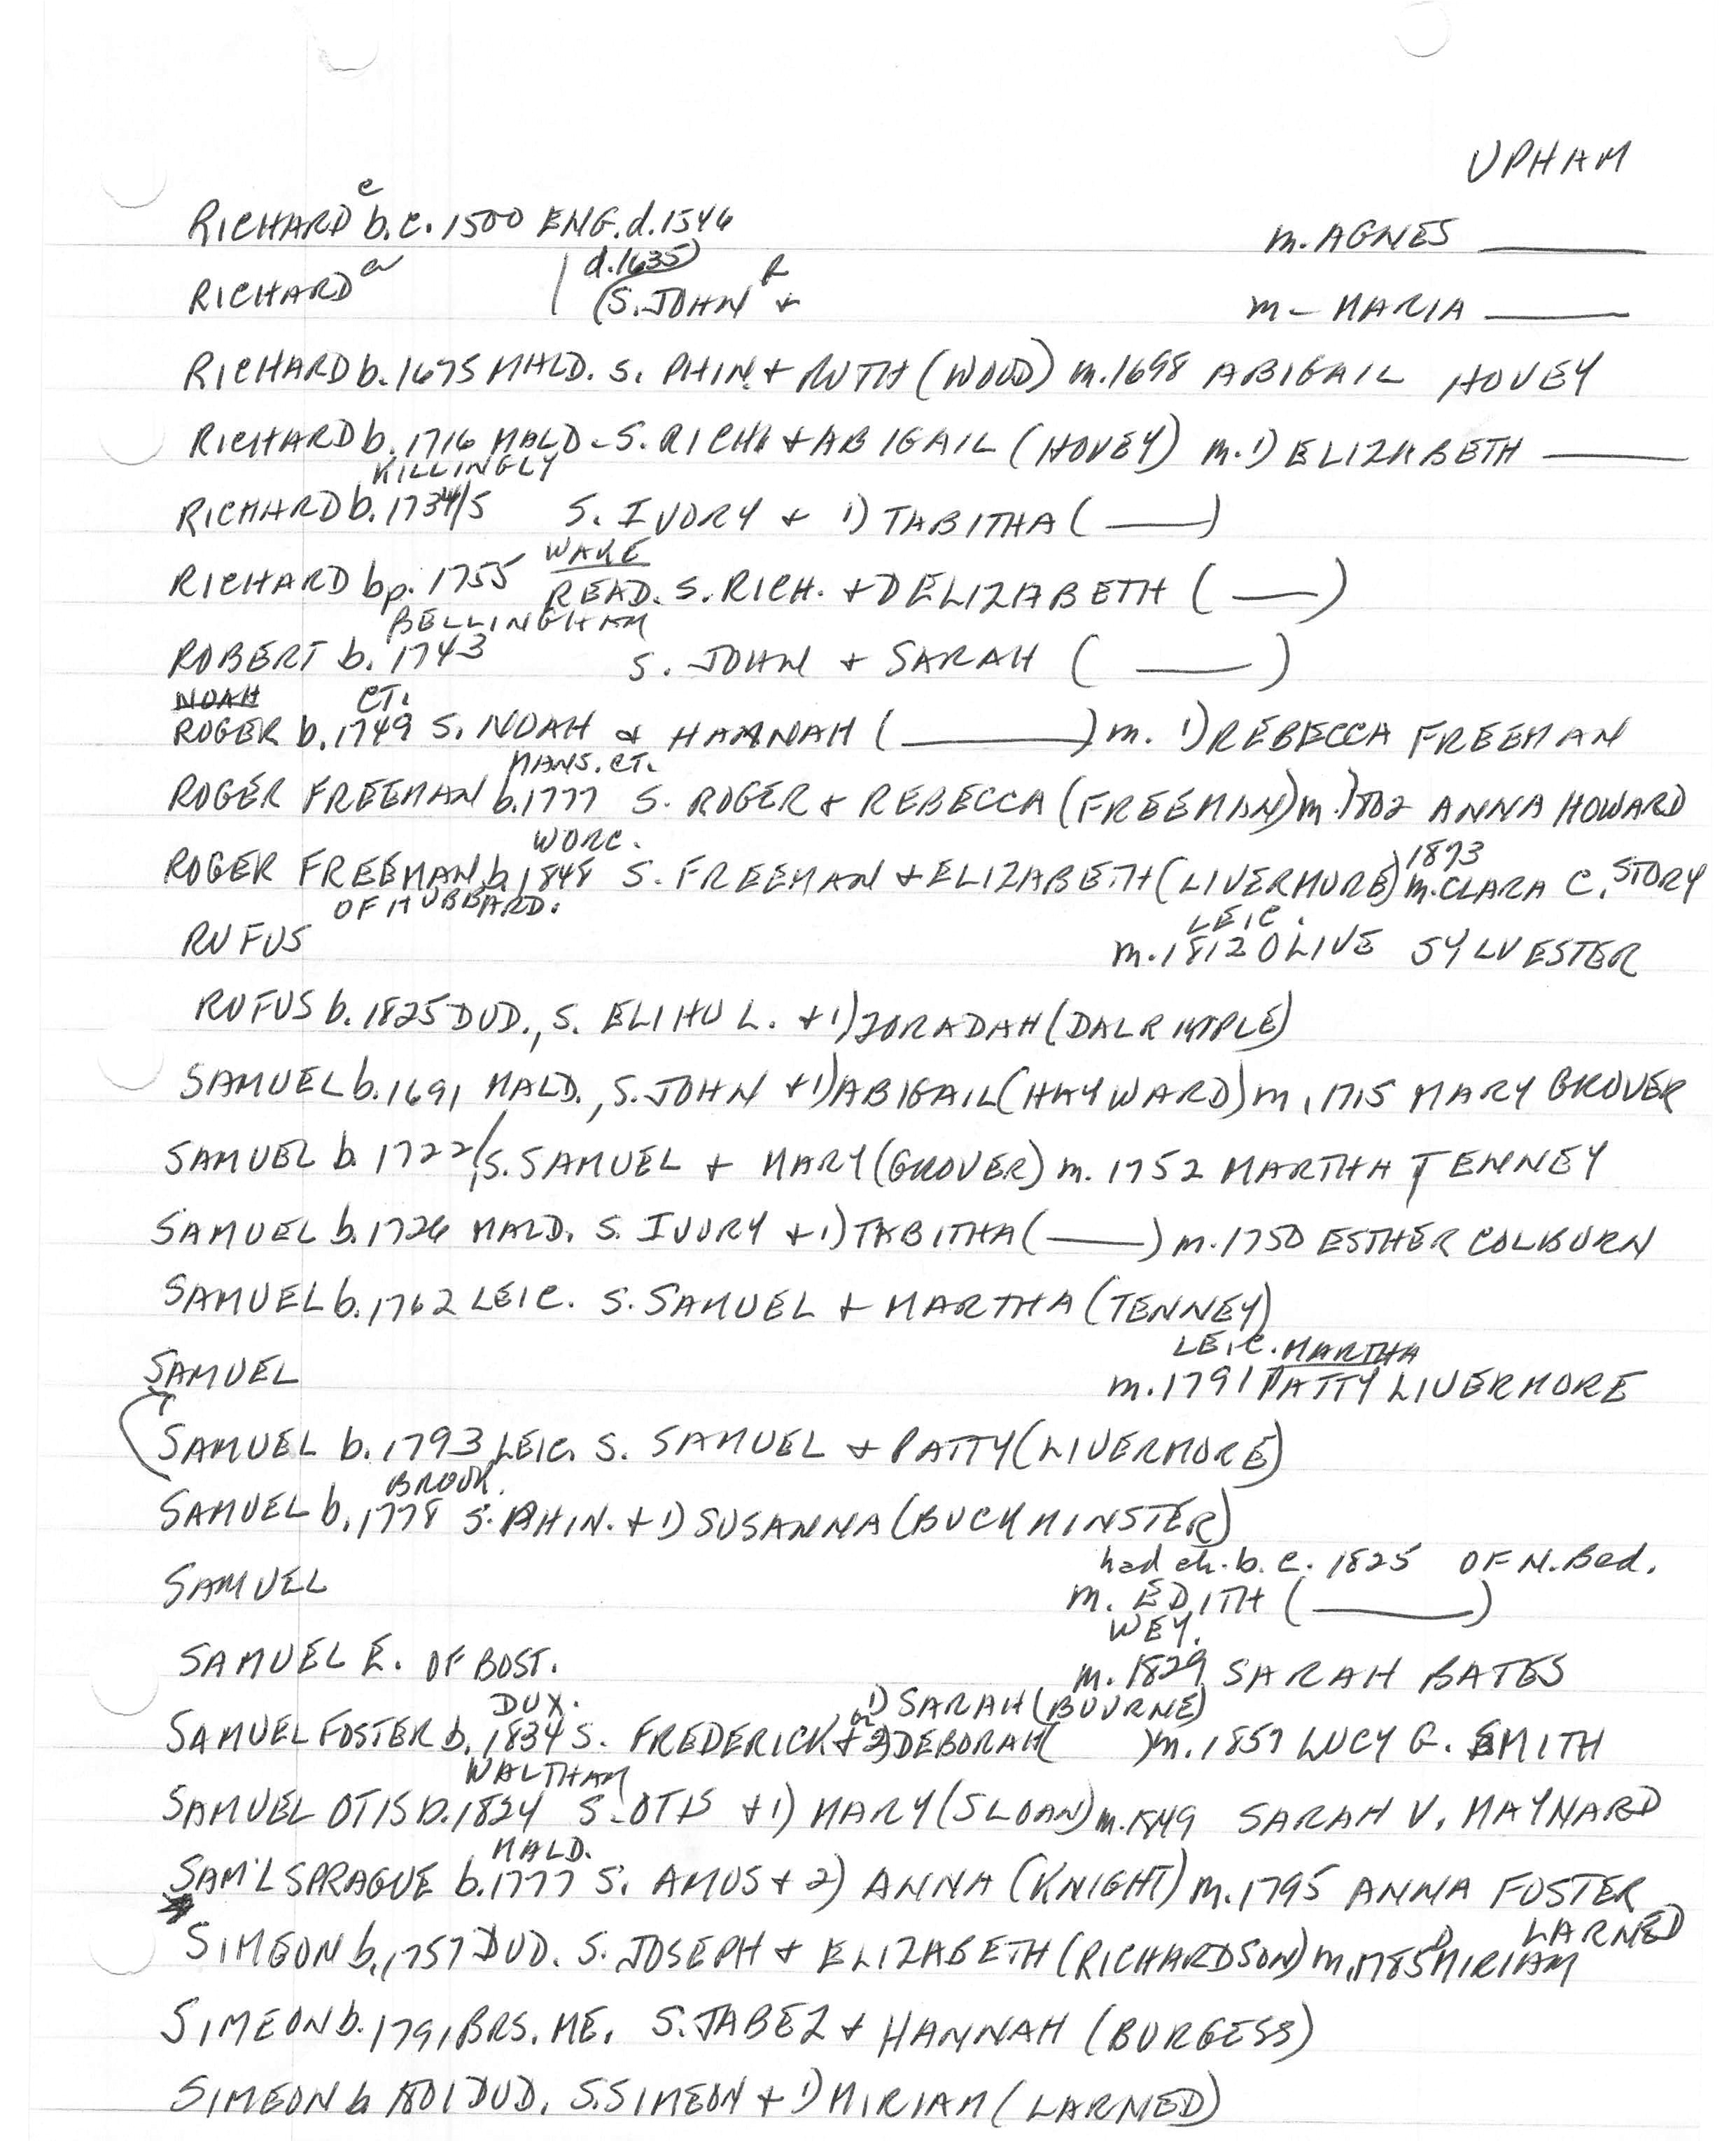 UPHAM
RICHARD e b.c. 1500 ENG. d. 1546 m. AGNES ______
d. 1635
RICHARD a (S. JOHN R + m - MARIA ______
RICHARD b. 1675 MALD. S. PHIN. + RUTH (WOOD) m. 1698 ABIGAIL HOVEY
RICHARD b. 1716 MALD - S. RICH. + ABIGAIL (HOVEY) m. 1) ELIZABETH ______
KILLINGLY
RICHARD b. 1734/5 S. IVORY + 1) TABITHA ( ______ )
WAKE
RICHARD bp. 1755 READ. S. RICH. + 1) ELIZABETH ( ______ )
BELLINGHAM
ROBERT b. 1743 S. JOHN + SARAH ( ______ )
NOAH CT.
ROGER b. 1749 S. NOAH & HANNAH ( ______ ) m. 1) REBECCA FREEMAN
MANS. CT.
ROGER FREEMAN b. 1777 S. ROGER + REBECCA (FREEMAN) m. 1802 ANNA HOWARD
WORC. 1873
ROGER FREEMAN b. 1848 S. FREEMAN + ELIZABETH (LIVERMORE) m. CLARA C. STORY
OF HUBBARD. LEIC.
RUFUS m. 1812 OLIVE SYLVESTER
RUFUS b. 1825 DUD., S. ELIHU L. + 1) ZORADAH (DALRIMPLE)
SAMUEL b. 1691 MALD., S. JOHN + 1) ABIGAIL (HAYWARD) m. 1715 MARY GROVER
SAMUEL b. 1722/ S. SAMUEL + MARY (GROVER) m. 1752 MARTHA TENNEY
SAMUEL b. 1726 MALD. S. IVORY + 1) TABITHA ( ______ ) m. 1750 ESTHER COLBURN
SAMUEL b. 1762 LEIC. S. SAMUEL + MARTHA (TENNEY)
LEIC. MARTHA
SAMUEL m. 1791 PATTY LIVERMORE
SAMUEL b. 1793 LEIC. S. SAMUEL + PATTY (LIVERMORE)
BROOK.
SAMUEL b. 1778 S. PHIN. + 1) SUSANNA (BUCKMINSTER)
had ch. b. c. 1825 OF N. Bed.
SAMUEL m. EDITH ( ______ )
WEY.
SAMUEL E. OF BOST. m. 1829 SARAH BATES
DUX. 1) SARAH (BOURNE)
SAMUEL FOSTER b. 1834 S. FREDERICK + or 2) DEBORAH ( ) m. 1857 LUCY G. SMITH
WALTHAM
SAMUEL OTIS b. 1824 S. OTIS + 1) MARY (SLOAN) m. 1849 SARAH V. MAYNARD
MALD.
SAM'L SPRAGUE b. 1777 S. AMOS + 2) ANNA (KNIGHT) m. 1795 ANNA FOSTER
LARNED
SIMEON b. 1757 DUD. S. JOSEPH + ELIZABETH (RICHARDSON) m. 1785 D MIRIAM
SIMEON b. 1791 BRS. ME. S. JABEZ + HANNAH (BURGESS)
SIMEON b. 1801 DUD. S. SIMEON + 1) MIRIAM (LARNED)